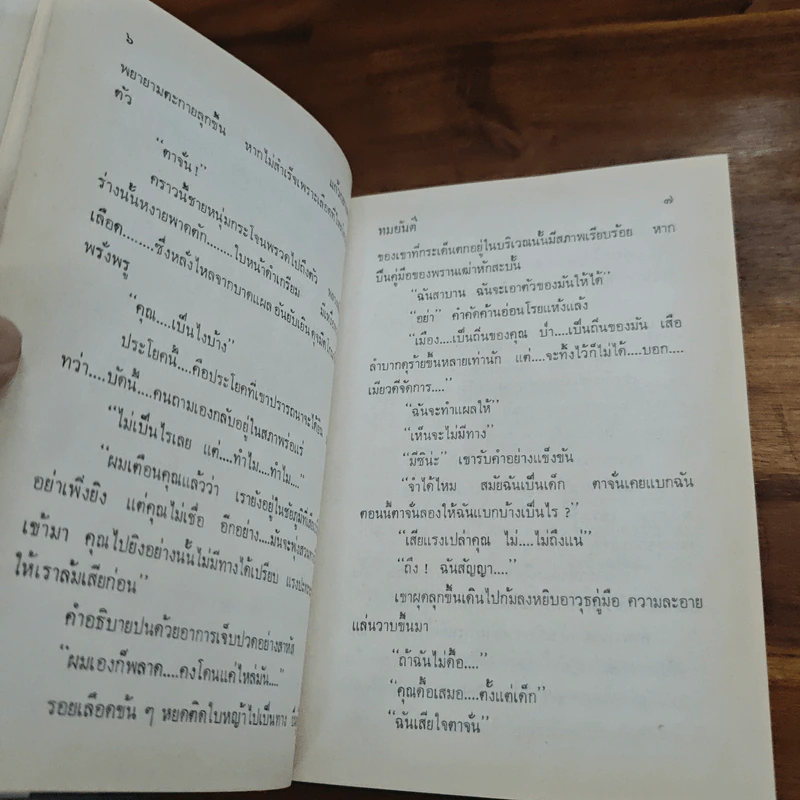 ๖
พยายามตะกายลุกขึ้น หากไม่สำเร็จเพราะเลือด
ตัว
“ตาจั่น!”
คราวนี้ชายหนุ่มกระโจนพรวดไปถึงตัว
ร่างนั้นหงายพาดตัก........ใบหน้าดำเกรียม
เลือด........ซึ่งหลั่งไหลจากบาดแผล อันยับเยิน
พรั่งพรู
“คุณ....เป็นไงบ้าง”
ประโยคนี้....คือประโยคที่เขาปรารถนาจะได้
ทว่า....บัดนี้....คนถามเองกลับอยู่ในสภาพร่อแร่
“ไม่เป็นไรเลย แต่....ทำไม....ทำไม....”
“ผมเตือนคุณแล้วว่า เรายังอยู่ในชัยภูมิที่
อย่าเพิ่งยิง แต่คุณไม่เชื่อ อีกอย่าง....มันจะพุ่งสวน
เข้ามา คุณไปยิงอย่างนั้นไม่มีทางได้เปรียบ แรงปะทะ
ให้เราล้มเสียก่อน”
คำอธิบายปนด้วยอาการเจ็บปวดอย่างสาหัส
“ผมเองก็พลาด....คงโดนแค่ไหล่มัน....”
รอยเลือดข้น ๆ หยดติดใบหญ้าไปเป็นทาง
๗
ทมยันตี
ของเขาที่กระเด็นตกอยู่ในบริเวณนั้นมีสภาพเรียบร้อย หาก
ปืนคู่มือของพรานเฒ่าหักสะบั้น
“ฉันสาบาน ฉันจะเอาตัวของมันให้ได้”
“อย่า” คำคัดค้านอ่อนโรยแห้งแล้ง
“เมือง....เป็นถิ่นของคุณ ป่า....เป็นถิ่นของมัน เสือ
ลำบากดุร้ายขึ้นหลายเท่านัก แต่....จะทิ้งไว้ก็ไม่ได้....บอก....
เมียวคีจัดการ....”
“ฉันจะทำแผลให้”
“เห็นจะไม่มีทาง”
“มีซิน่ะ” เขารับคำอย่างแข็งขัน
“จำได้ไหม สมัยฉันเป็นเด็ก ตาจั่นเคยแบกฉัน
ตอนนี้ตาจั่นลองให้ฉันแบกบ้างเป็นไร ?”
“เสียแรงเปล่าคุณ ไม่....ไม่ถึงแน่”
“ถึง ! ฉันสัญญา....”
เขาผุดลุกขึ้นเดินไปก้มลงหยิบอาวุธคู่มือ ความละอาย
แล่นวาบขึ้นมา
“ถ้าฉันไม่ดื้อ....”
“คุณดื้อเสมอ....ตั้งแต่เด็ก”
“ฉันเสียใจตาจั่น”